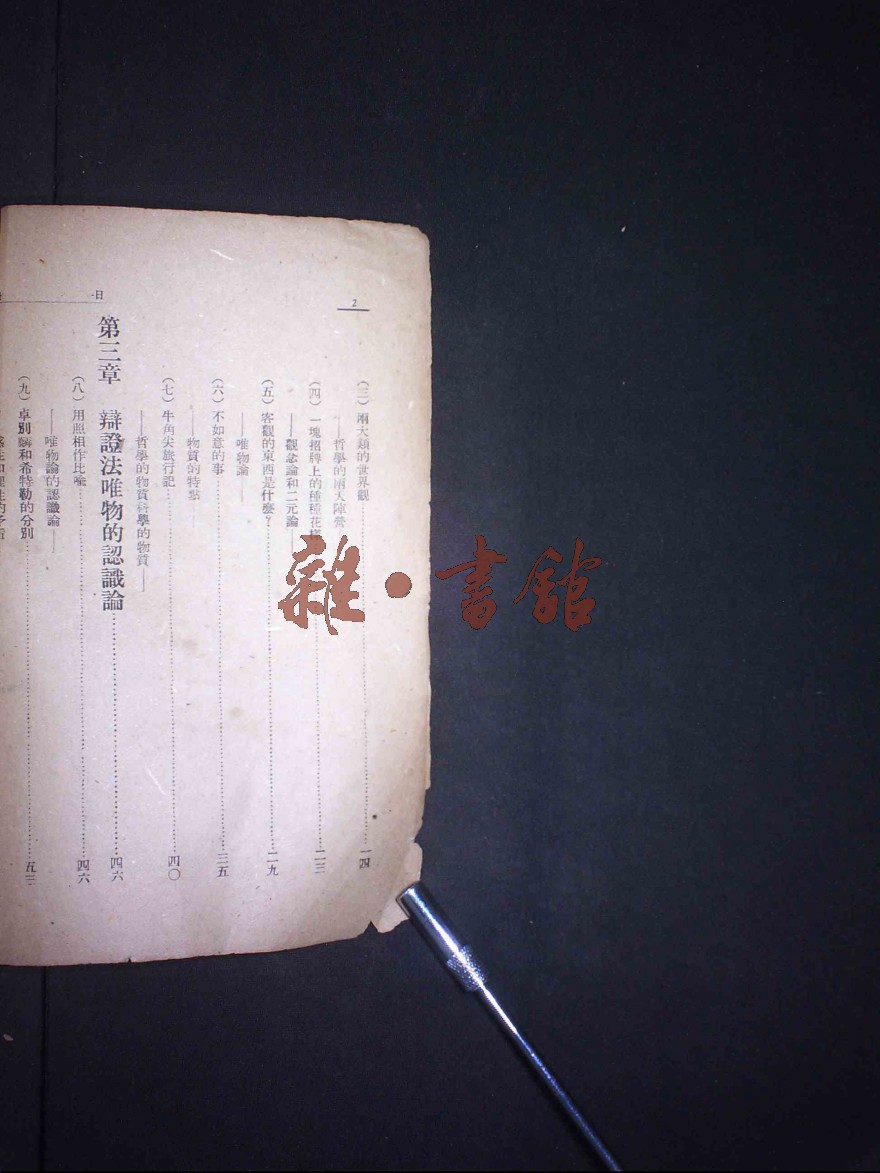 2
(三)兩大類的世界觀……一四
——哲學的兩大陣營——
(四)一塊招牌上的種種花樣……二三
——觀念論和二元論——
(五)客觀的東西是什麼?……二九
——唯物論——
(六)不如意的事……三五
——物質的特點——
(七)牛角尖旅行記……四〇
——哲學的物質科學的物質——
第三章 辯證法唯物的認識論……四六
(八)用照相作比喻……四六
——唯物論的認識論——
(九)卓別麟和希特勒的分別……五三
雜•書館